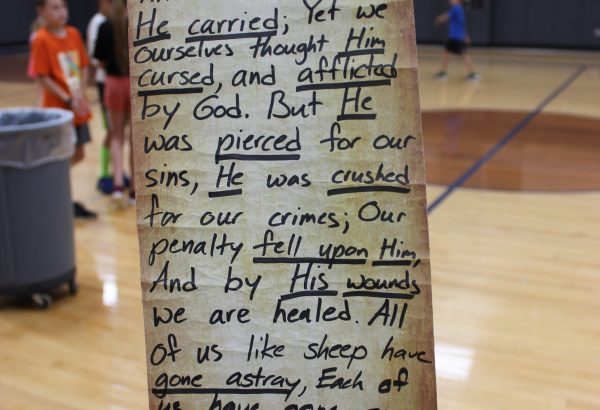 He carried; Yet we
ourselves thought Him
cursed, and afflicted
by God. But He
was pierced for our
sins, He was crushed
for our crimes; Our
penalty fell upon Him,
And by His wounds
we are healed. All
of us like sheep have
gone astray, Each of
us have gone